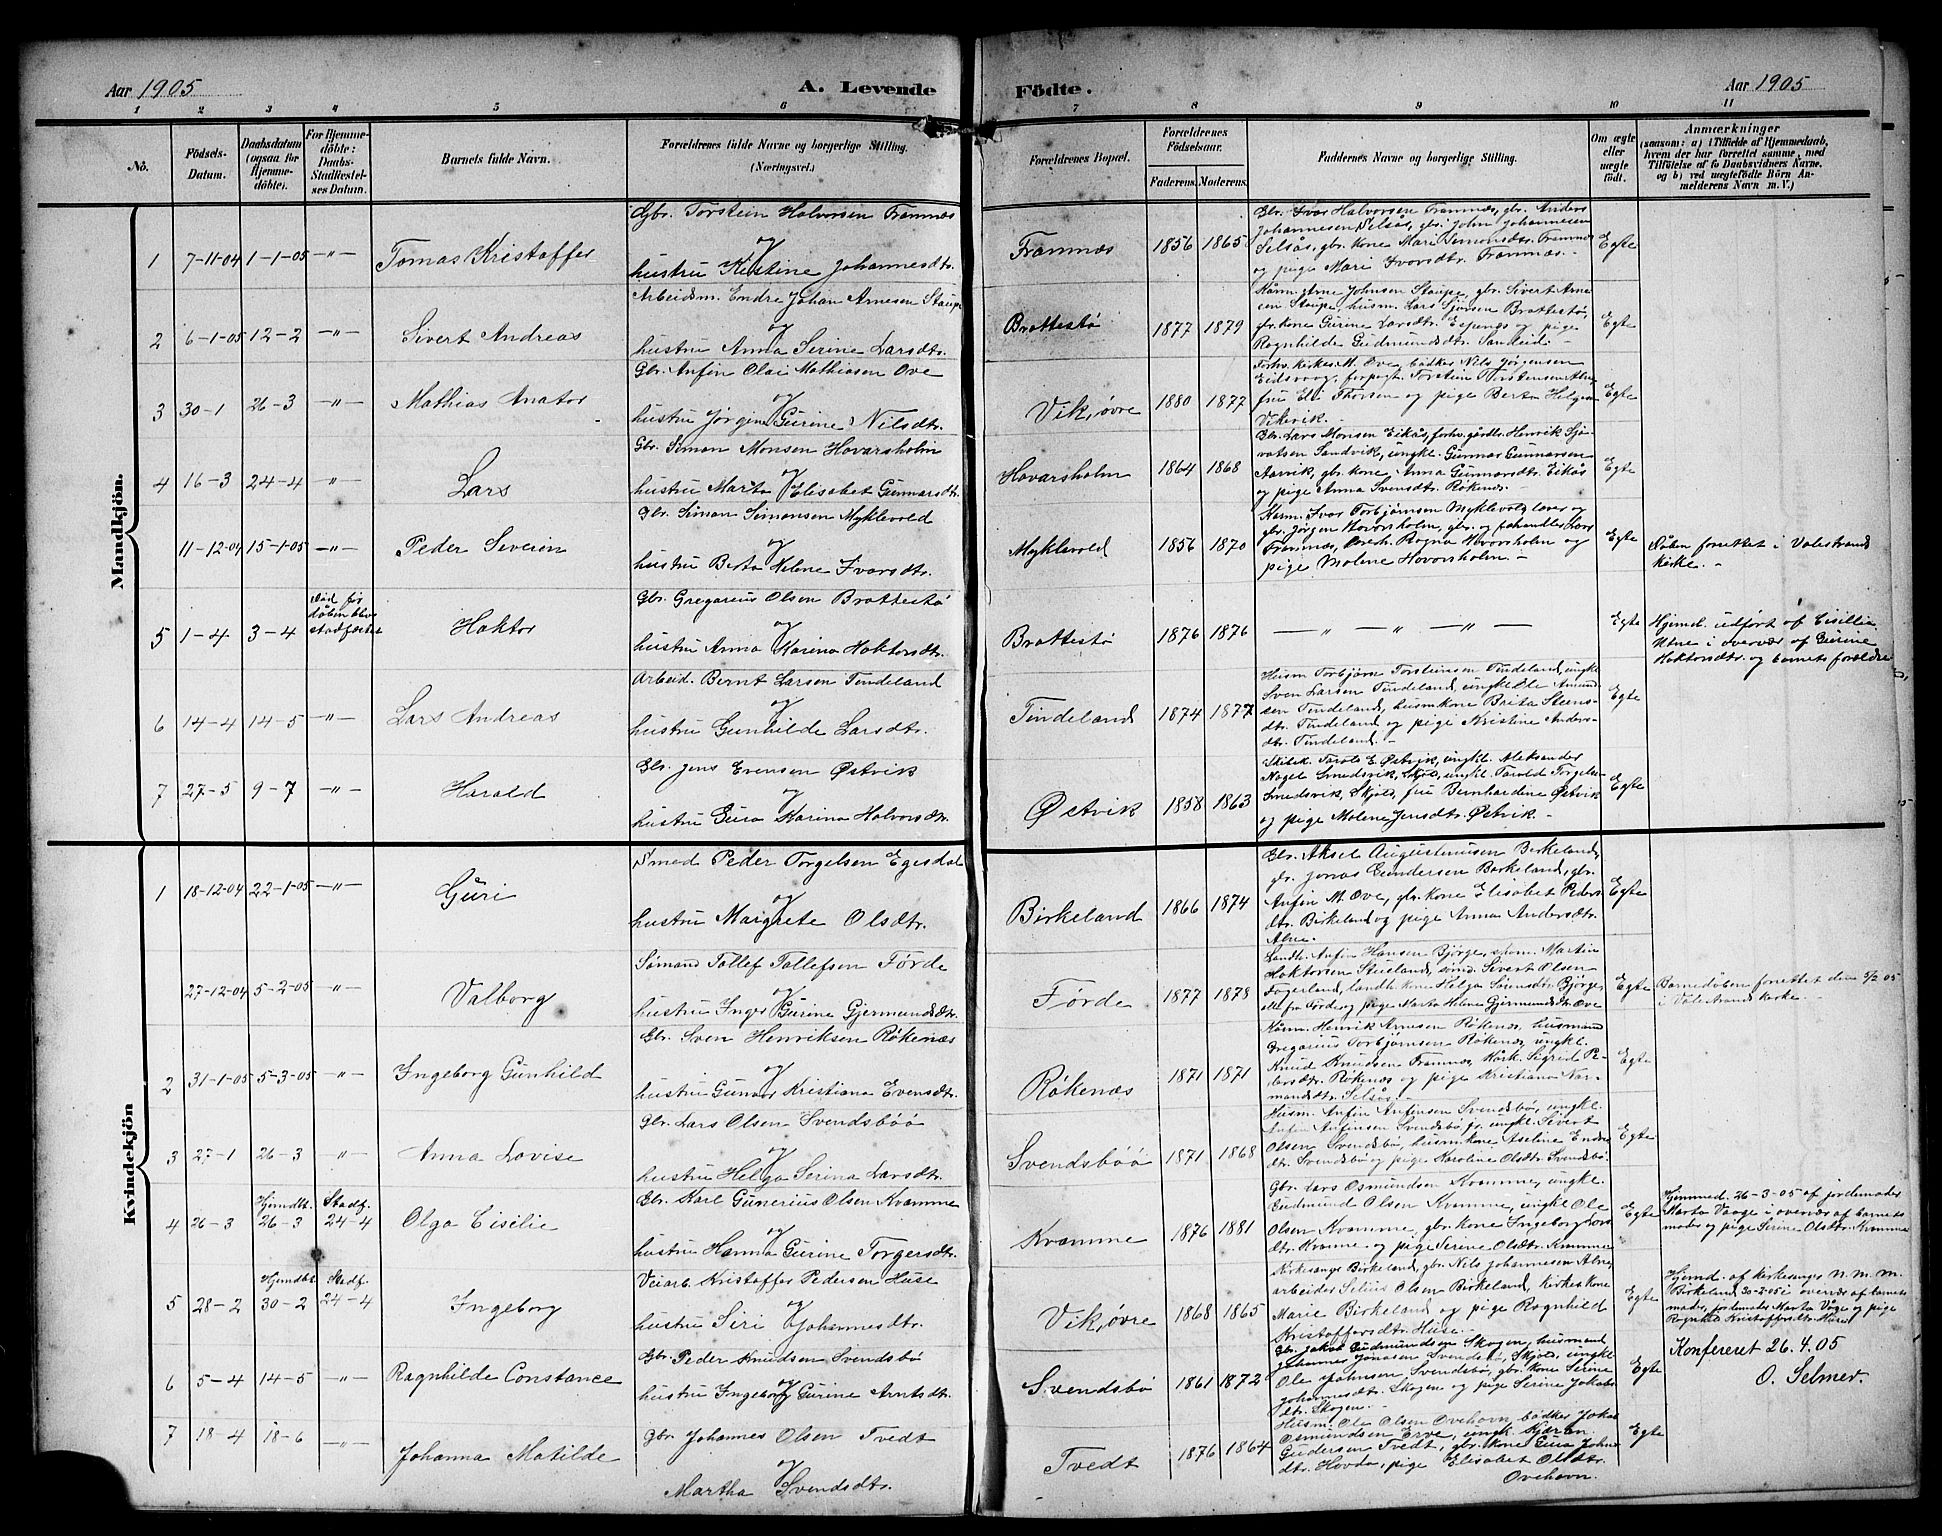 Aar 1905
A. Levende
Födte.
Aar 1905
1 2 3 4 5 6 7 8 9 10 11
No.
Födsels-Datum.
Daabsdatum (ogsaa for Hjemme-döbte).
For Hjemme-döbte: Daabs-Stadfæstel-ses Datum.
Barnets fulde Navn.
Forældrenes fulde Navne og borgerlige Stilling. (Næringsvei.)
Forældrenes Bopæl.
Forældrenes Födselsaar.
Faderens. Moderens.
Faddernes Navne og borgerlige Stilling.
Om ægte eller uægte födt.
Anmærkninger
(saasom: a) i Tilfælde af Hjemmedaab, hvem der har forrettet samme, med Tilföielse af to Daabsvidners Navne, og b) ved uægtefödte Börn An-melderens Navn m. V.)
Mandkjön.
1 7-11-04 1-1-05 —"— Tomas Kristoffer
Gbr. Torstein Halvorsen Framnæs
og
hustru Kristine Johannesdtr.
Framnæs 1856 1865
Gbr. Ivar Halvorsen Framnæs, gbr. Anders
Johannesen Selsås, gbr. John Johannesen
Selsås, gbr. kone Mari Simonsdtr. Framnæs
og pige Mari Ivarsdtr. Framnæs.
Egte
2 6-1-05 12-2 —"— Sivert Andreas
Arbeidsm. Endre Johan Arnesen Staupe
og
hustru Anna Serine Larsdtr.
Brattestø 1877 1879
Kårm. Arne Johnsen Staupe, gbr. Sivert Arne
sen Staupe, husm. Lars Sjursen Brattestø,
gbr. kone Gurine Larsdtr. og pige
Ragnhilde Gudmundsdtr. Sandeid.
Egte
3 30-1 26-3 —"— Mathias Anator
Gbr. Anfin Olai Mathiasen Ove
og
hustru Jørgine Gurine Nilsdtr.
Vik, øvre 1880 1877
Forhv. kirkes. M. Ove, bødker Nils Jørgensen
Eidsvaag, forpagt. Torstein Torstensen Alne
frue Eli Thorsen og pige Berta Helgesen
Vikevik.
Egte
4 16-3 24-4 —"— Lars
Gbr. Simon Monsen Hovarsholm
og
hustru Marta Elisabet Gunnarsdtr.
Hovarsholm 1864 1868
Gbr. Lars Monsen Eikås, forhv. gårdbr. Henrik Sjo-
vatsen Sandvik, ungkl. Gunnar Gunnarsen
Aarvik, gbr. kone Anna Gunnarsdtr. Eikås
og pige Anna Svensdtr. Røkenes.
Egte
11-12-04 15-1-05 —"— Peder Severin
Gbr. Simon Simonsen Myklevold
og
hustru Berta Helene Ivarsdtr.
Myklevold 1856 1870
Kårm. Ivar Torbjørnsen Myklevold,
gbr. Jørgen Hovarsholm, gbr. og fæhandler Lars
Framnæs, Ragna Hovarsholm og
pige Malene Hovarsholm.
Egte
Dåben forrettet i Valestrand
kirke.
5 1-4 3-4
Død før
dåben blev
stadfæstet
Haktor
Gbr. Gregarius Olsen Brattestø
og
hustru Anna Karina Haktorsdtr.
Brattestø 1876 1876 — " — " — " —
Egte
Hjemd. udført af Eisillie
Utne i overvær af Gurine
Haktorsdtr. og barnets forældre
6 14-4 14-5 —"— Lars Andreas
Arbeid. Bernt Larsen Tindeland
og
hustru Gunhilde Larsdtr.
Tindeland 1874 1877
Husm. Torbjørn Torsteinsen Tindeland, ungkl.
Sven Larsen Tindeland, ungkl. Ole Amund
sen Tindeland, husm.kone Brita Steens-
dtr. Tindeland og pige Kristine Anders-
dtr. Tindeland.
Egte
7 27-5 9-7 —"— Harald
Gbr. Jens Evensen Østvik
og
hustru Gura Karina Halvorsdtr.
Østvik 1858 1863
Skibsk. Tarald E. Østvik, ungkl. Aleksander
Nagel Smedsvik, Skjold, ungkl. Tarald Torgels
Smedsvik, Skjold, frue Bernhardine Østvik
og pige Malene Jensdtr. Østvik.
Egte
Kvindekjön
1 18-12-04 22-1-05 —"— Guri
Smed Peder Torgelsen Egesdal
og
hustru Margrete Olsdtr.
Birkeland 1866 1874
Gbr. Aksel Augustinusen Birkeland,
gbr. Jonas Gundersen Birkeland, gbr.
Anfin M. Ove, gbr. kone Elisabet Peders-
dtr. Birkeland og pige Anna Andersdtr.
Alne.
Egte
27-12-04 5-2-05 —"— Valborg
Sømand Tollef Tollefsen Førde
og
hustru Inger Gurine Gjermundsdtr.
Førde 1877 1878
Landh. Anfin Hansen Bjørge, søm. Martin
Haktorsen Stueland, sømd. Sivert Olsen
Fagerland, landh. kone Helga Bjørge
alle fra Førde og pige Marta Helene Gjermundsdtr. Ove
Egte
Barnedåben forrettet den 5/2 05
i Valestrand kirke.
2 31-1-05 5-3-05 —"— Ingeborg Gunhild
Gbr. Sven Henriksen Røkenæs
og
hustru Gunnor Kristiana Evensdtr.
Røkenæs 1871 1871
Kårm. Henrik Arnesen Røkenæs, husmand
Gregarius Torbjørnsen Røkenæs, ungkl.
Knud Knudsen Framnæs, Kårk. Sigrid Pe-
dersdtr. Røkenæs og pige Kristiana Nor-
mandsdtr. Selsås.
Egte
3 27-1 26-3 —"— Anna Lovise
Gbr. Lars Olsen Svendsbøø
og
hustru Helga Serina Larsdtr.
Svendsbøø 1871 1868
Husm. Anfin Anfinsen Svendsbø, ungkl.
Anfin Anfinsen Svendsbø jr., ungkl. Sivert
Olsen Svendsbø, husm.kone Aseline Endre
dtr. Svendsbø og pige Karoline Olsdtr. Svendsbø.
Egte
4 26-3
Hjemdbt. 26-3
Stadf. 24-4
Olga Eisilie
Gbr. Karl Gunerius Olsen Kvamme
og
hustru Hanna Gurine Torgersdtr.
Kvamme 1876 1881
Gbr. Lars Osmundsen Kvamme, ungkl.
Gudmund Olsen Kvamme, ungkl. Ole
Olsen Kvamme, gbr. kone Ingeborg Lars
dtr. Kvamme og pige Serine Olsdtr. Kvamme
Egte
Hjemmed. 26-3-05 af jordemoder
Marta Vaage i overvær af barnets
moder og pige Serine Olsdtr. Kvamme
5 28-2
Hjemdbt. 30-2
Stadf. 24-4
Ingeborg
Veiarb. Kristoffer Pedersen Huse
og
hustru Siri Johannesdtr.
Vik, øvre 1868 1865
Kirkesanger Birkeland, gbr. Nils Johannesen Alne,
arbeider Selius Olsen Birkeland, Kirkes. kone
Marie Birkeland og pige Ragnhild
Kristoffersdtr. Huse.
Egte
Hjemd. af kirkesanger N. M. M.
Birkeland 30-2-05 i overvær af barnets
moder, jordemoder Marta Våge og pige
Ragnhil Kristoffersdtr. Huse
Konfereret 26.4.05
O. Selmer.
6 5-4 14-5 —"— Ragnhilde Constance
Gbr. Peder Knudsen Svendsbø
og
hustru Ingeborg Gurine Arntsdtr.
Svendsbø 1861 1872
Gbr. Jakob Gudmundsen Skogen, husmand
Johannes Jonasen Svendsbø, Skjold, ungkl.
Ole Johnsen Svendsbø, gbr. kone Serine
Johannesdtr. Skogen og pige Serine Jakobs
dtr. Skogen.
Egte
7 18-4 18-6 —"— Johanna Matilde
Gbr. Johannes Olsen Tvedt
og
Martha Svendsdtr.
Tvedt 1876 1864
Husm. Ole Olsen Ovehavn, bødker Jakob
Osmundsen Erve, ungk. Kjøran
Gudersen Tvedt, gbr. kone Guro John
dtr. Hovda, pige Elisabet Olsdtr.
Ovehavn.
Egte